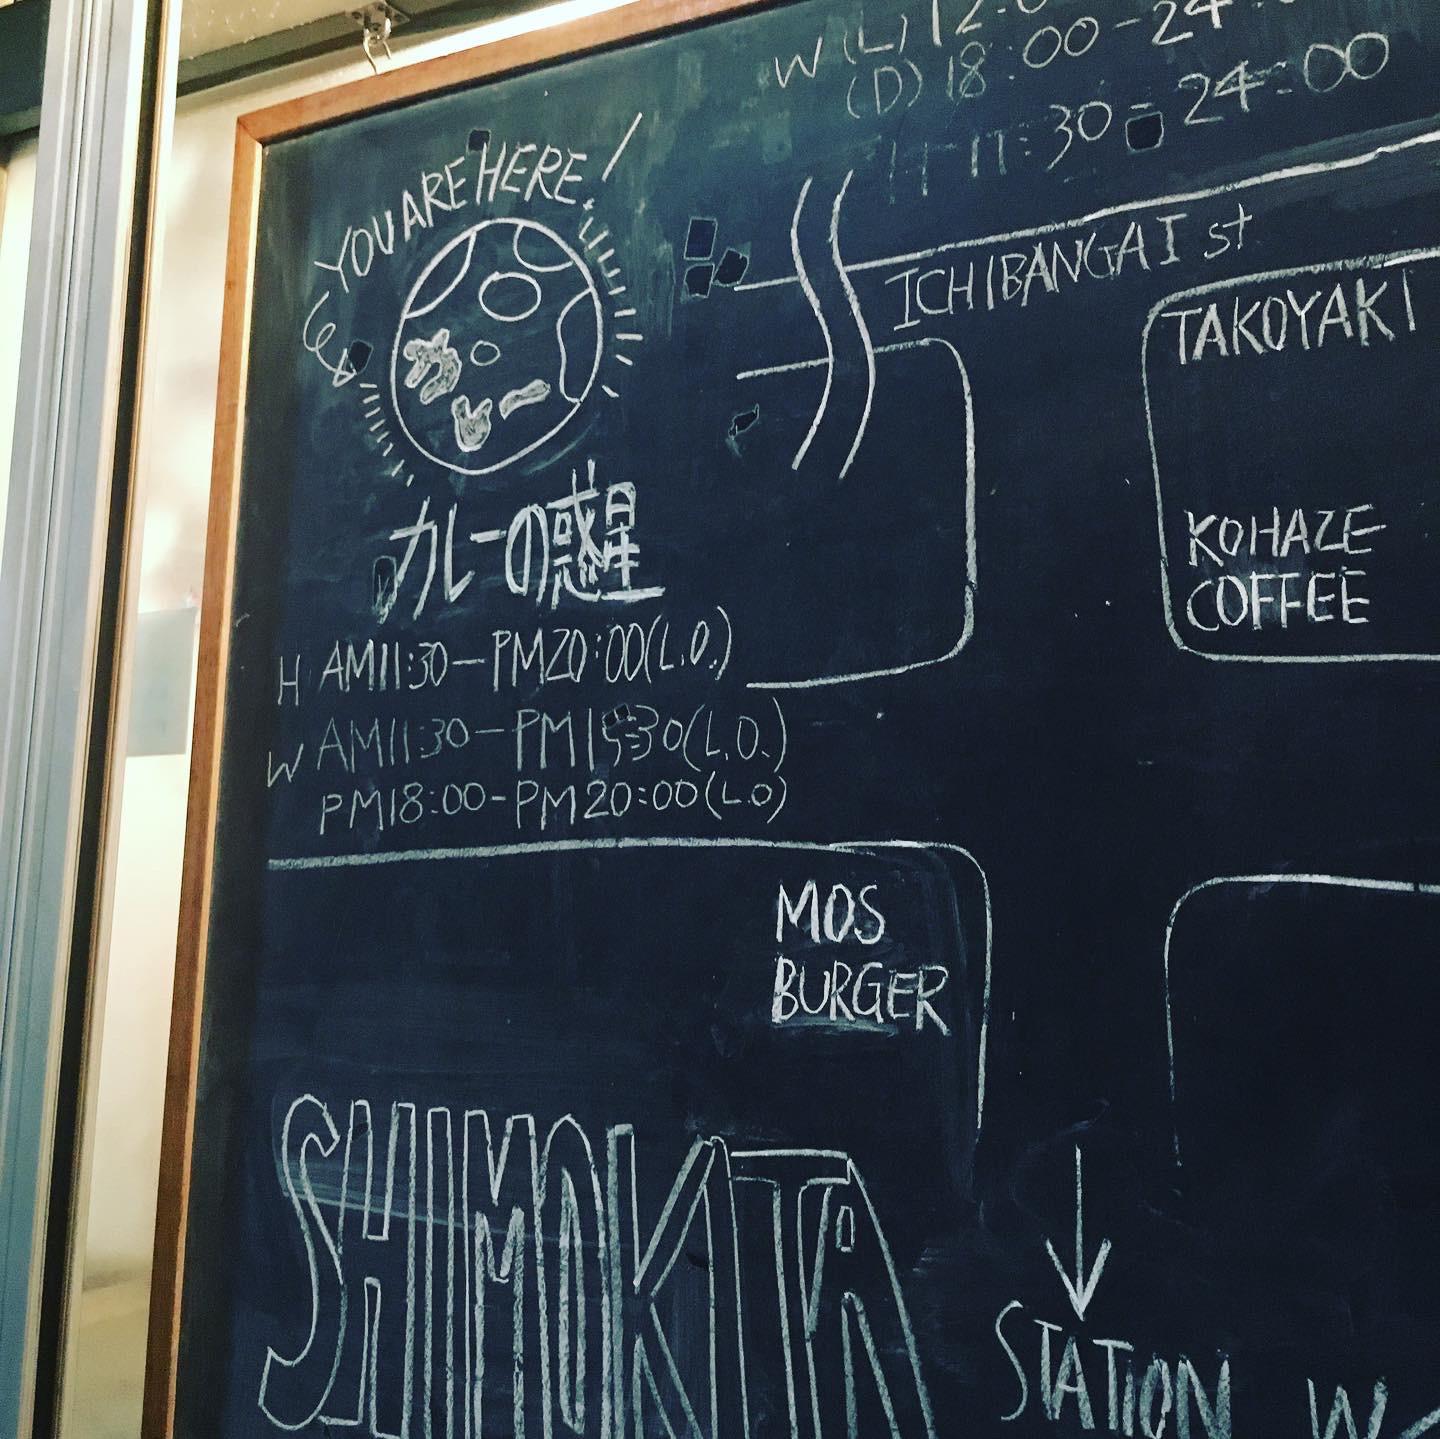 W (L) 12:0
(D) 18:00-24
H 11:30-24:00
YOU ARE HERE!
カレー
カレーの惑星
H AM11:30-PM20:00(L.O.)
W AM11:30-PM15:30(L.O.)
PM18:00-PM20:00(L.O)
ICHIBANGAI st
TAKOYAKI
KOHAZE
COFFEE
MOS
BURGER
SHIMOKITA
STATION